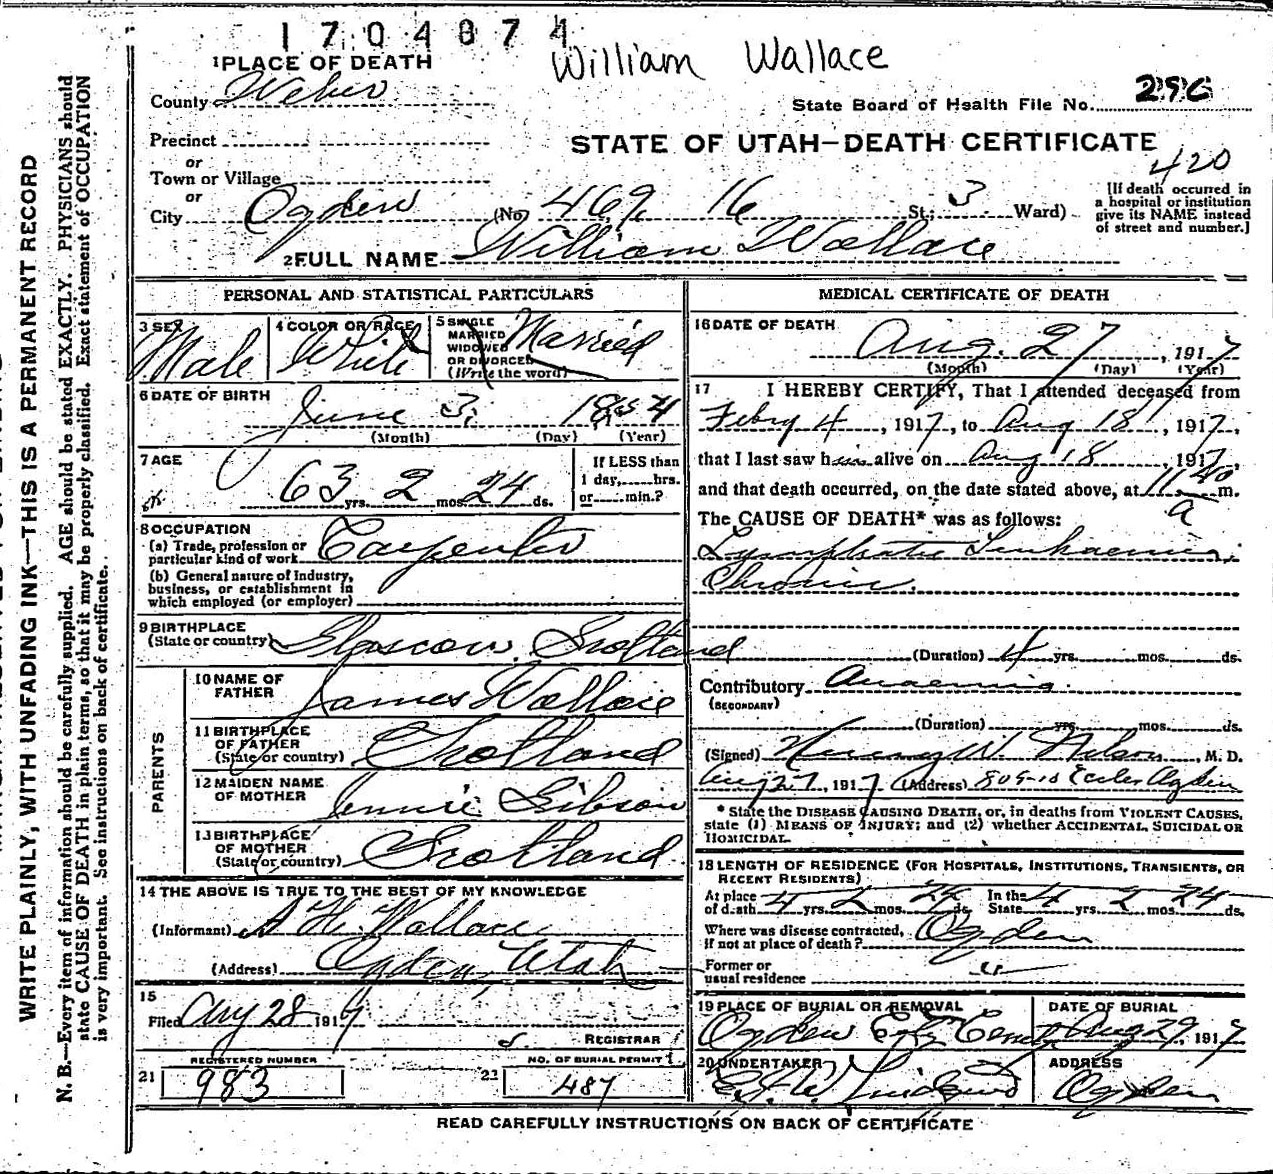 1704874
William Wallace
1 PLACE OF DEATH
County Weber
State Board of Health File No. 296
Precinct
STATE OF UTAH—DEATH CERTIFICATE
or
420
Town or Village
or
City Ogden (No. 469 16 St.; 3 Ward)
[If death occurred in
a hospital or institution
give its NAME instead
of street and number.]
2 FULL NAME William Wallace
PERSONAL AND STATISTICAL PARTICULARS
3 SEX Male
4 COLOR OR RACE White
5 SINGLE
MARRIED
WIDOWED
OR DIVORCED
(Write the word) Married
6 DATE OF BIRTH
June 3, 1854
(Month) (Day) (Year)
7 AGE
63 yrs. 2 mos. 24 ds.
If LESS than
1 day, hrs.
or min.?
8 OCCUPATION
(a) Trade, profession or
particular kind of work Carpenter
(b) General nature of Industry,
business, or establishment in
which employed (or employer)
9 BIRTHPLACE
(State or country) Glascow, Scotland
PARENTS
10 NAME OF
FATHER James Wallace
11 BIRTHPLACE
OF FATHER
(State or country) Scotland
12 MAIDEN NAME
OF MOTHER Jennie Gibson
13 BIRTHPLACE
OF MOTHER
(State or country) Scotland
14 THE ABOVE IS TRUE TO THE BEST OF MY KNOWLEDGE
(Informant) A H. Wallace
(Address) Ogden, Utah
15
Filed Aug 28 1917
REGISTRAR
REGISTERED NUMBER
21 983
NO. OF BURIAL PERMIT
487
MEDICAL CERTIFICATE OF DEATH
16 DATE OF DEATH
Aug. 27, 1917
(Month) (Day) (Year)
17 I HEREBY CERTIFY, That I attended deceased from
Febry 4, 1917, to Aug 18, 1917,
that I last saw him alive on Aug 18, 1917,
and that death occurred, on the date stated above, at 11 40 m.
a
The CAUSE OF DEATH* was as follows:
Lymphatic Leukaemia,
Chronic.
(Duration) 4 yrs. mos. ds.
Contributory Anaemia.
(SECONDARY)
(Duration) yrs. mos. ds.
(Signed) W. Nelson, M. D.
Aug 27, 1917 (Address) 809-10 Eccles Ogden
* State the DISEASE CAUSING DEATH, or, in deaths from VIOLENT CAUSES,
state (1) MEANS OF INJURY; and (2) whether ACCIDENTAL, SUICIDAL OR
HOMICIDAL.
18 LENGTH OF RESIDENCE (FOR HOSPITALS, INSTITUTIONS, TRANSIENTS, OR
RECENT RESIDENTS)
At place
of death 4 yrs. 2 mos. 24 ds. In the State 4 yrs. 2 mos. 24 ds.
Where was disease contracted,
if not at place of death? Ogden
Former or
usual residence "
19 PLACE OF BURIAL OR REMOVAL
Ogden City Cem
DATE OF BURIAL
Aug 29, 1917
20 UNDERTAKER
ADDRESS
Ogden
READ CAREFULLY INSTRUCTIONS ON BACK OF CERTIFICATE
WRITE PLAINLY, WITH UNFADING INK—THIS IS A PERMANENT RECORD
N. B.—Every item of information should be carefully supplied. AGE should be stated EXACTLY. PHYSICIANS should
state CAUSE OF DEATH in plain terms, so that it may be properly classified. Exact statement of OCCUPATION
is very important. See instructions on back of certificate.